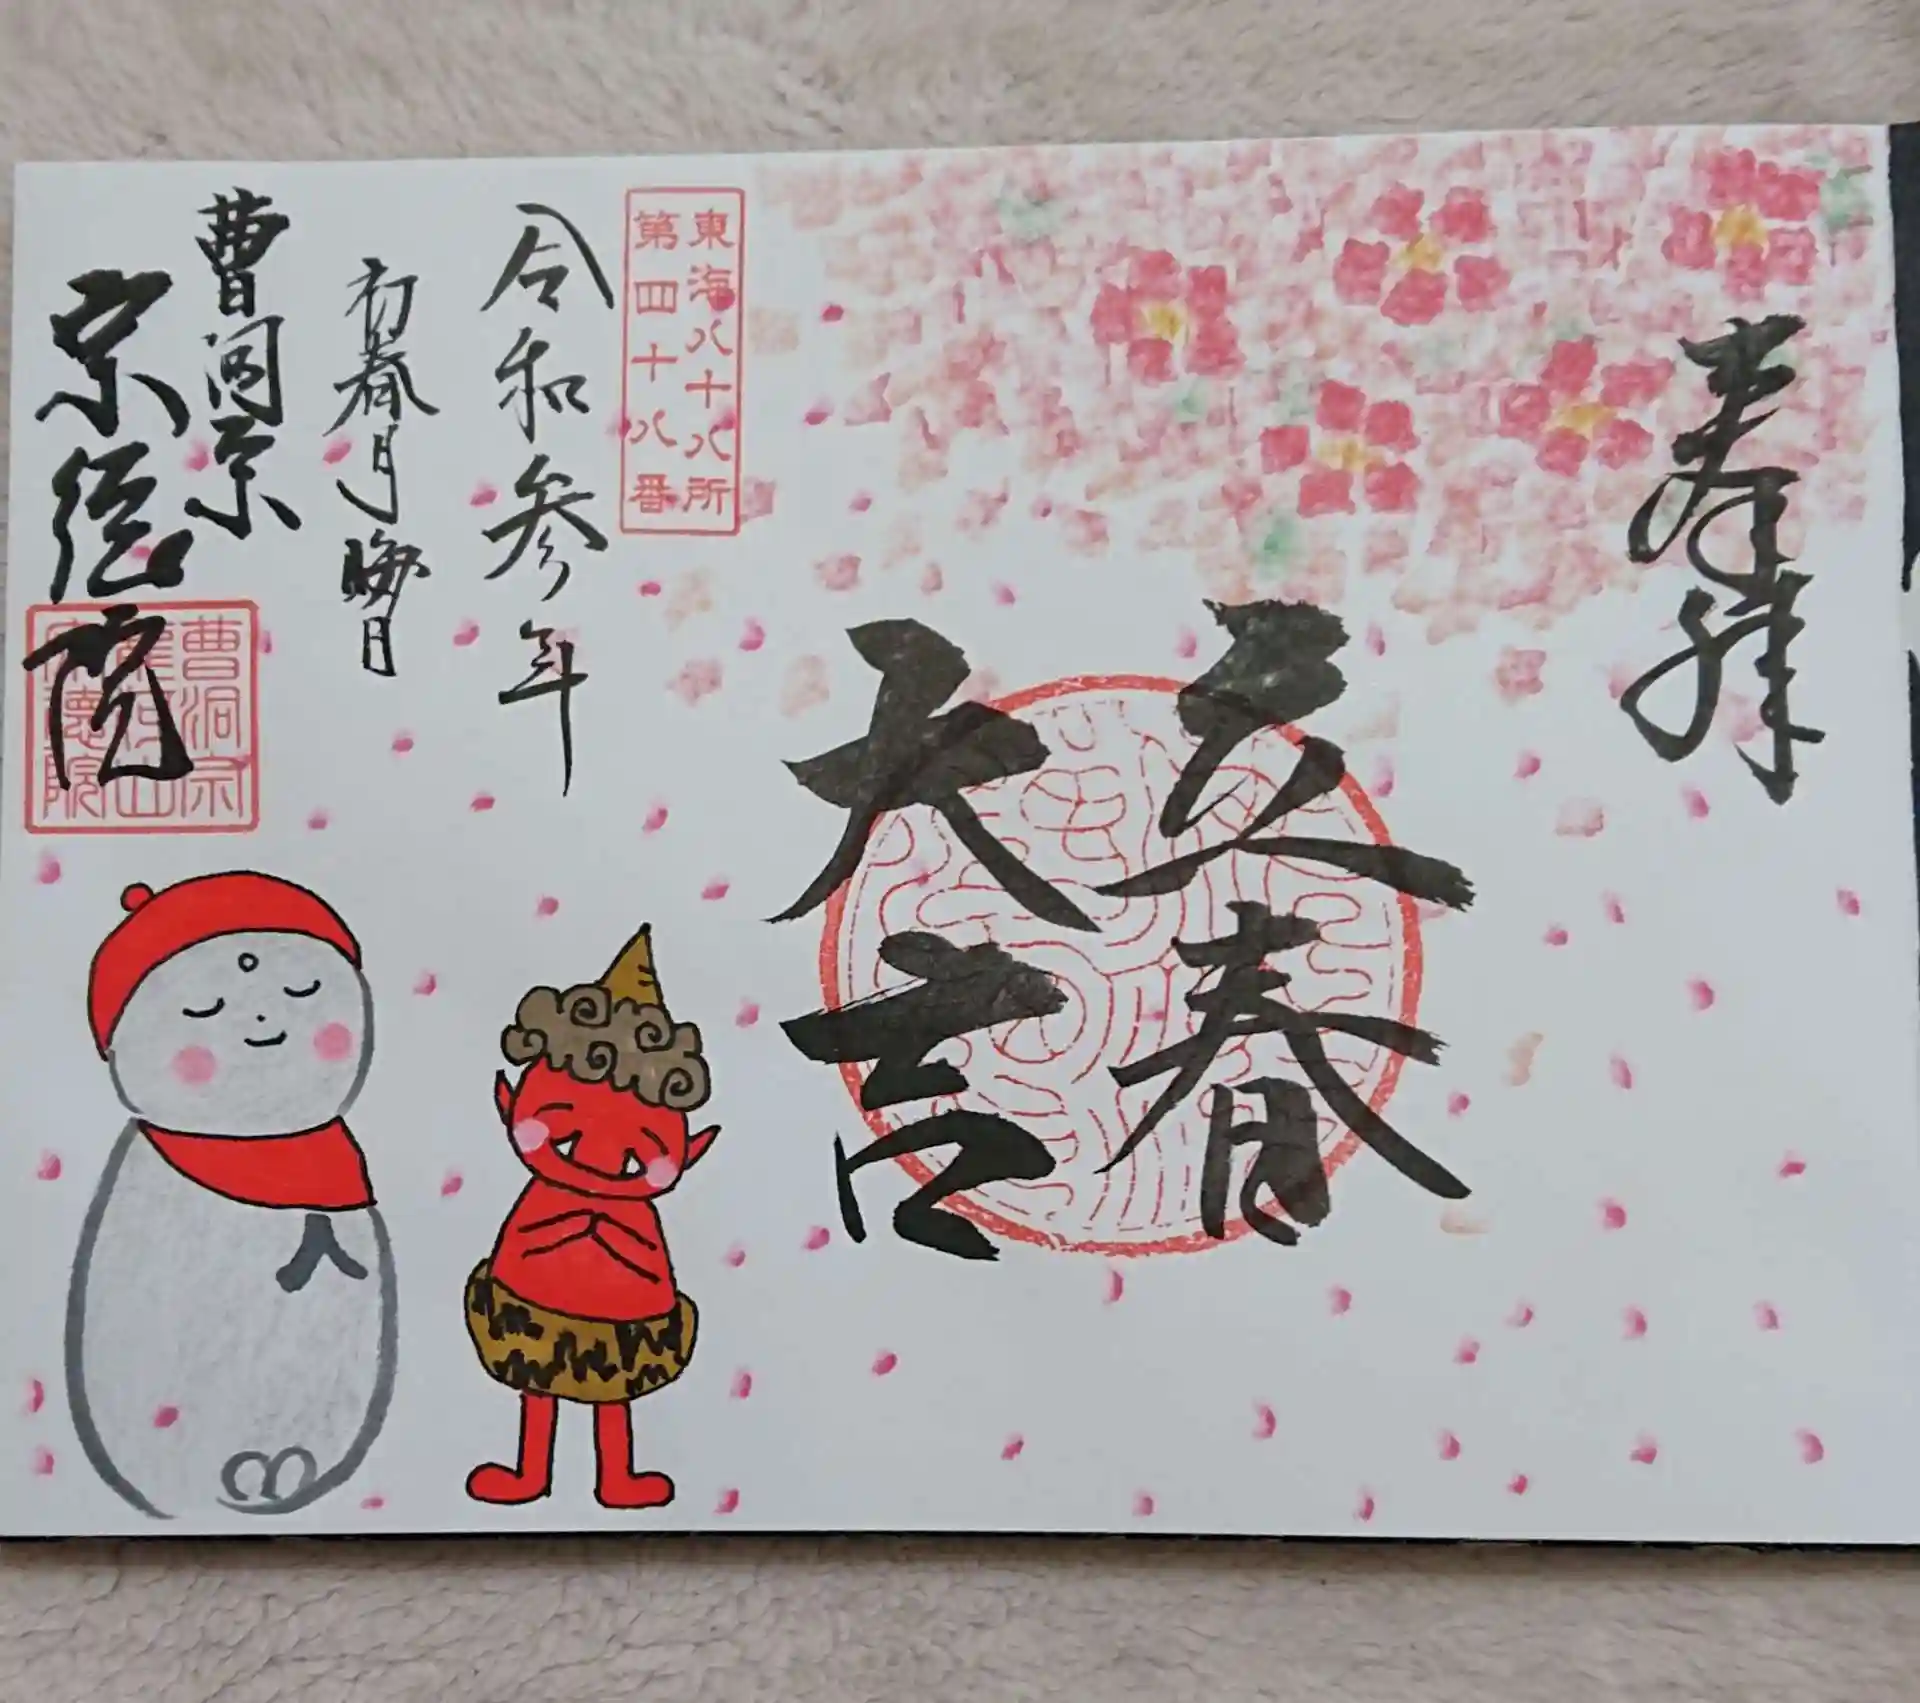 奉拝
立春
大吉
東海八十八所
第四十八番
令和参年
初春月晦日
曹洞宗
宗徳院
曹洞宗
宗德院